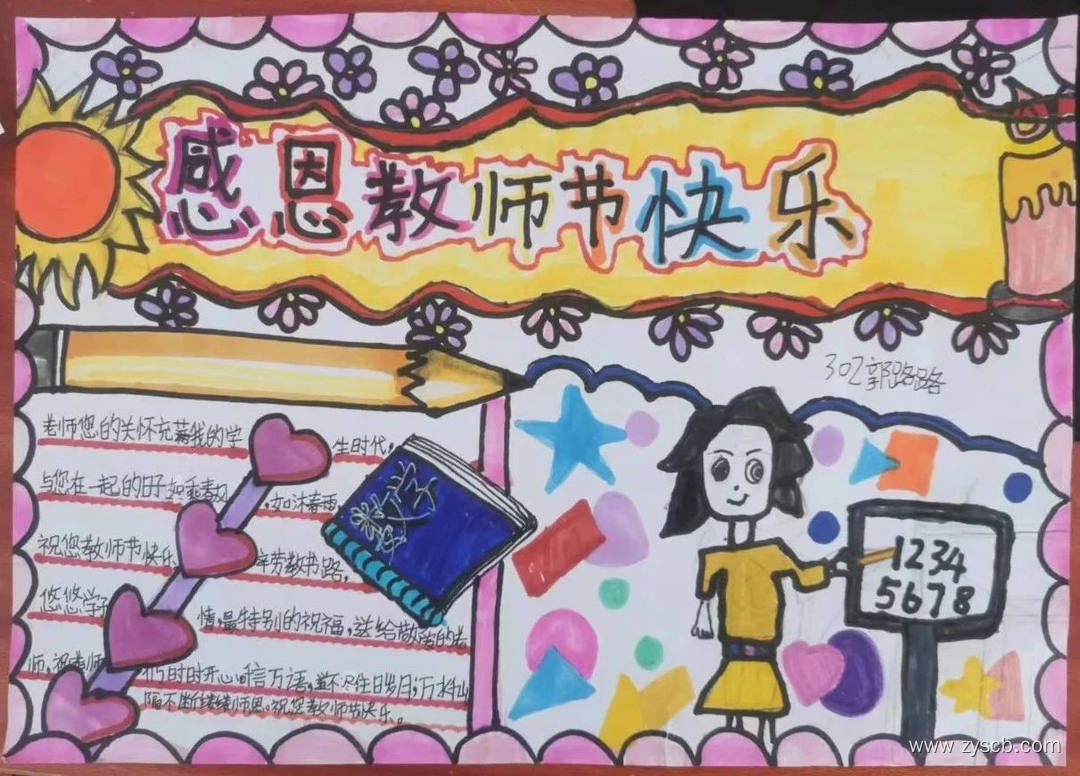 感恩教师节快乐
302郭路路
老师您的关怀充满我的学生时代,
与您在一起的日子如乘春风,如沐春雨
祝您教师节快乐 辛劳数书路,
悠悠学子情,最特别的祝福,送给敬爱的老
师,祝老师们时时开心 千言万语,道不尽往日岁月;万水千山
隔不断缕缕师恩。祝您教师节快乐。
数学
1234
5678
www.zyscb.com